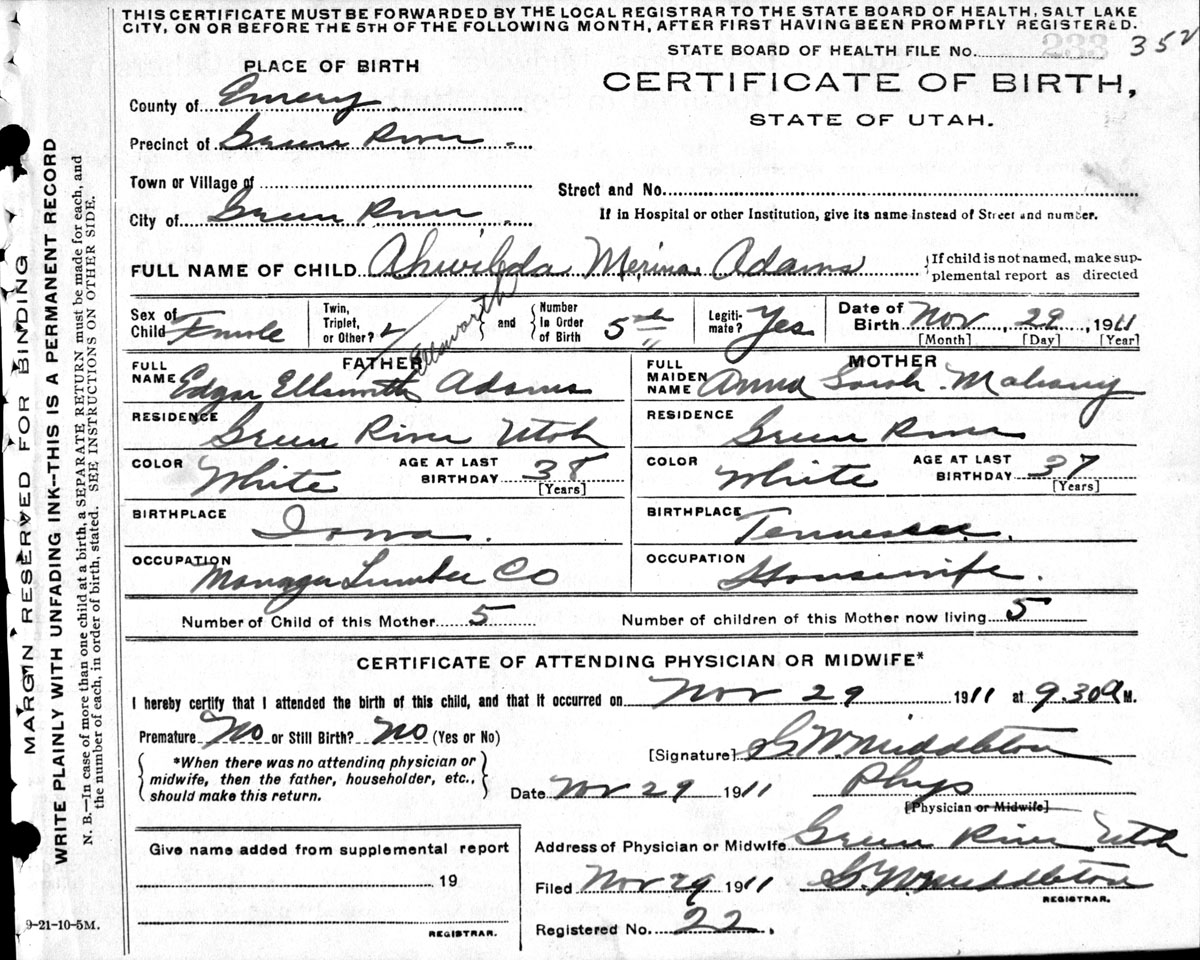 THIS CERTIFICATE MUST BE FORWARDED BY THE LOCAL REGISTRAR TO THE STATE BOARD OF HEALTH, SALT LAKE
CITY, ON OR BEFORE THE 5TH OF THE FOLLOWING MONTH, AFTER FIRST HAVING BEEN PROMPTLY REGISTERED.
STATE BOARD OF HEALTH FILE No. 233 352
PLACE OF BIRTH
CERTIFICATE OF BIRTH,
STATE OF UTAH.
County of Emery
Precinct of Green River
Town or Village of
Street and No.
City of Green River
If in Hospital or other Institution, give its name instead of Street and number.
FULL NAME OF CHILD Ahwilda Merina Adams
If child is not named, make supplemental report as directed
Sex of Child Female
Twin, Triplet, or Other?
and Number In Order of Birth 5th
Legitimate? Yes
Date of Birth Nov 29, 1911
[Month] [Day] [Year]
Ellsworth
FATHER
MOTHER
FULL NAME Edgar Ellsworth Adams
FULL MAIDEN NAME Anna Sarah Mahany
RESIDENCE Green River Utah
RESIDENCE Green River
COLOR White AGE AT LAST BIRTHDAY 38 [Years]
COLOR White AGE AT LAST BIRTHDAY 37 [Years]
BIRTHPLACE Iowa.
BIRTHPLACE Tennessee.
OCCUPATION Manager Lumber Co
OCCUPATION Housewife.
Number of Child of this Mother 5 Number of children of this Mother now living 5
CERTIFICATE OF ATTENDING PHYSICIAN OR MIDWIFE*
I hereby certify that I attended the birth of this child, and that it occurred on Nov 29 1911 at 9.30 a M.
Premature No or Still Birth? No (Yes or No)
[Signature] G W Middleton
*When there was no attending physician or
midwife, then the father, householder, etc.,
should make this return.
Date Nov 29 1911 Phys
[Physician or Midwife]
Give name added from supplemental report
19
REGISTRAR.
Address of Physician or Midwife Green River Utah
Filed Nov 29 1911 G W Middleton
REGISTRAR.
Registered No. 22.
9-21-10-5M.
MARGIN RESERVED FOR BINDING
WRITE PLAINLY WITH UNFADING INK--THIS IS A PERMANENT RECORD
N. B.--In case of more than one child at a birth, a SEPARATE RETURN must be made for each, and
the number of each, in order of birth, stated. SEE INSTRUCTIONS ON OTHER SIDE.